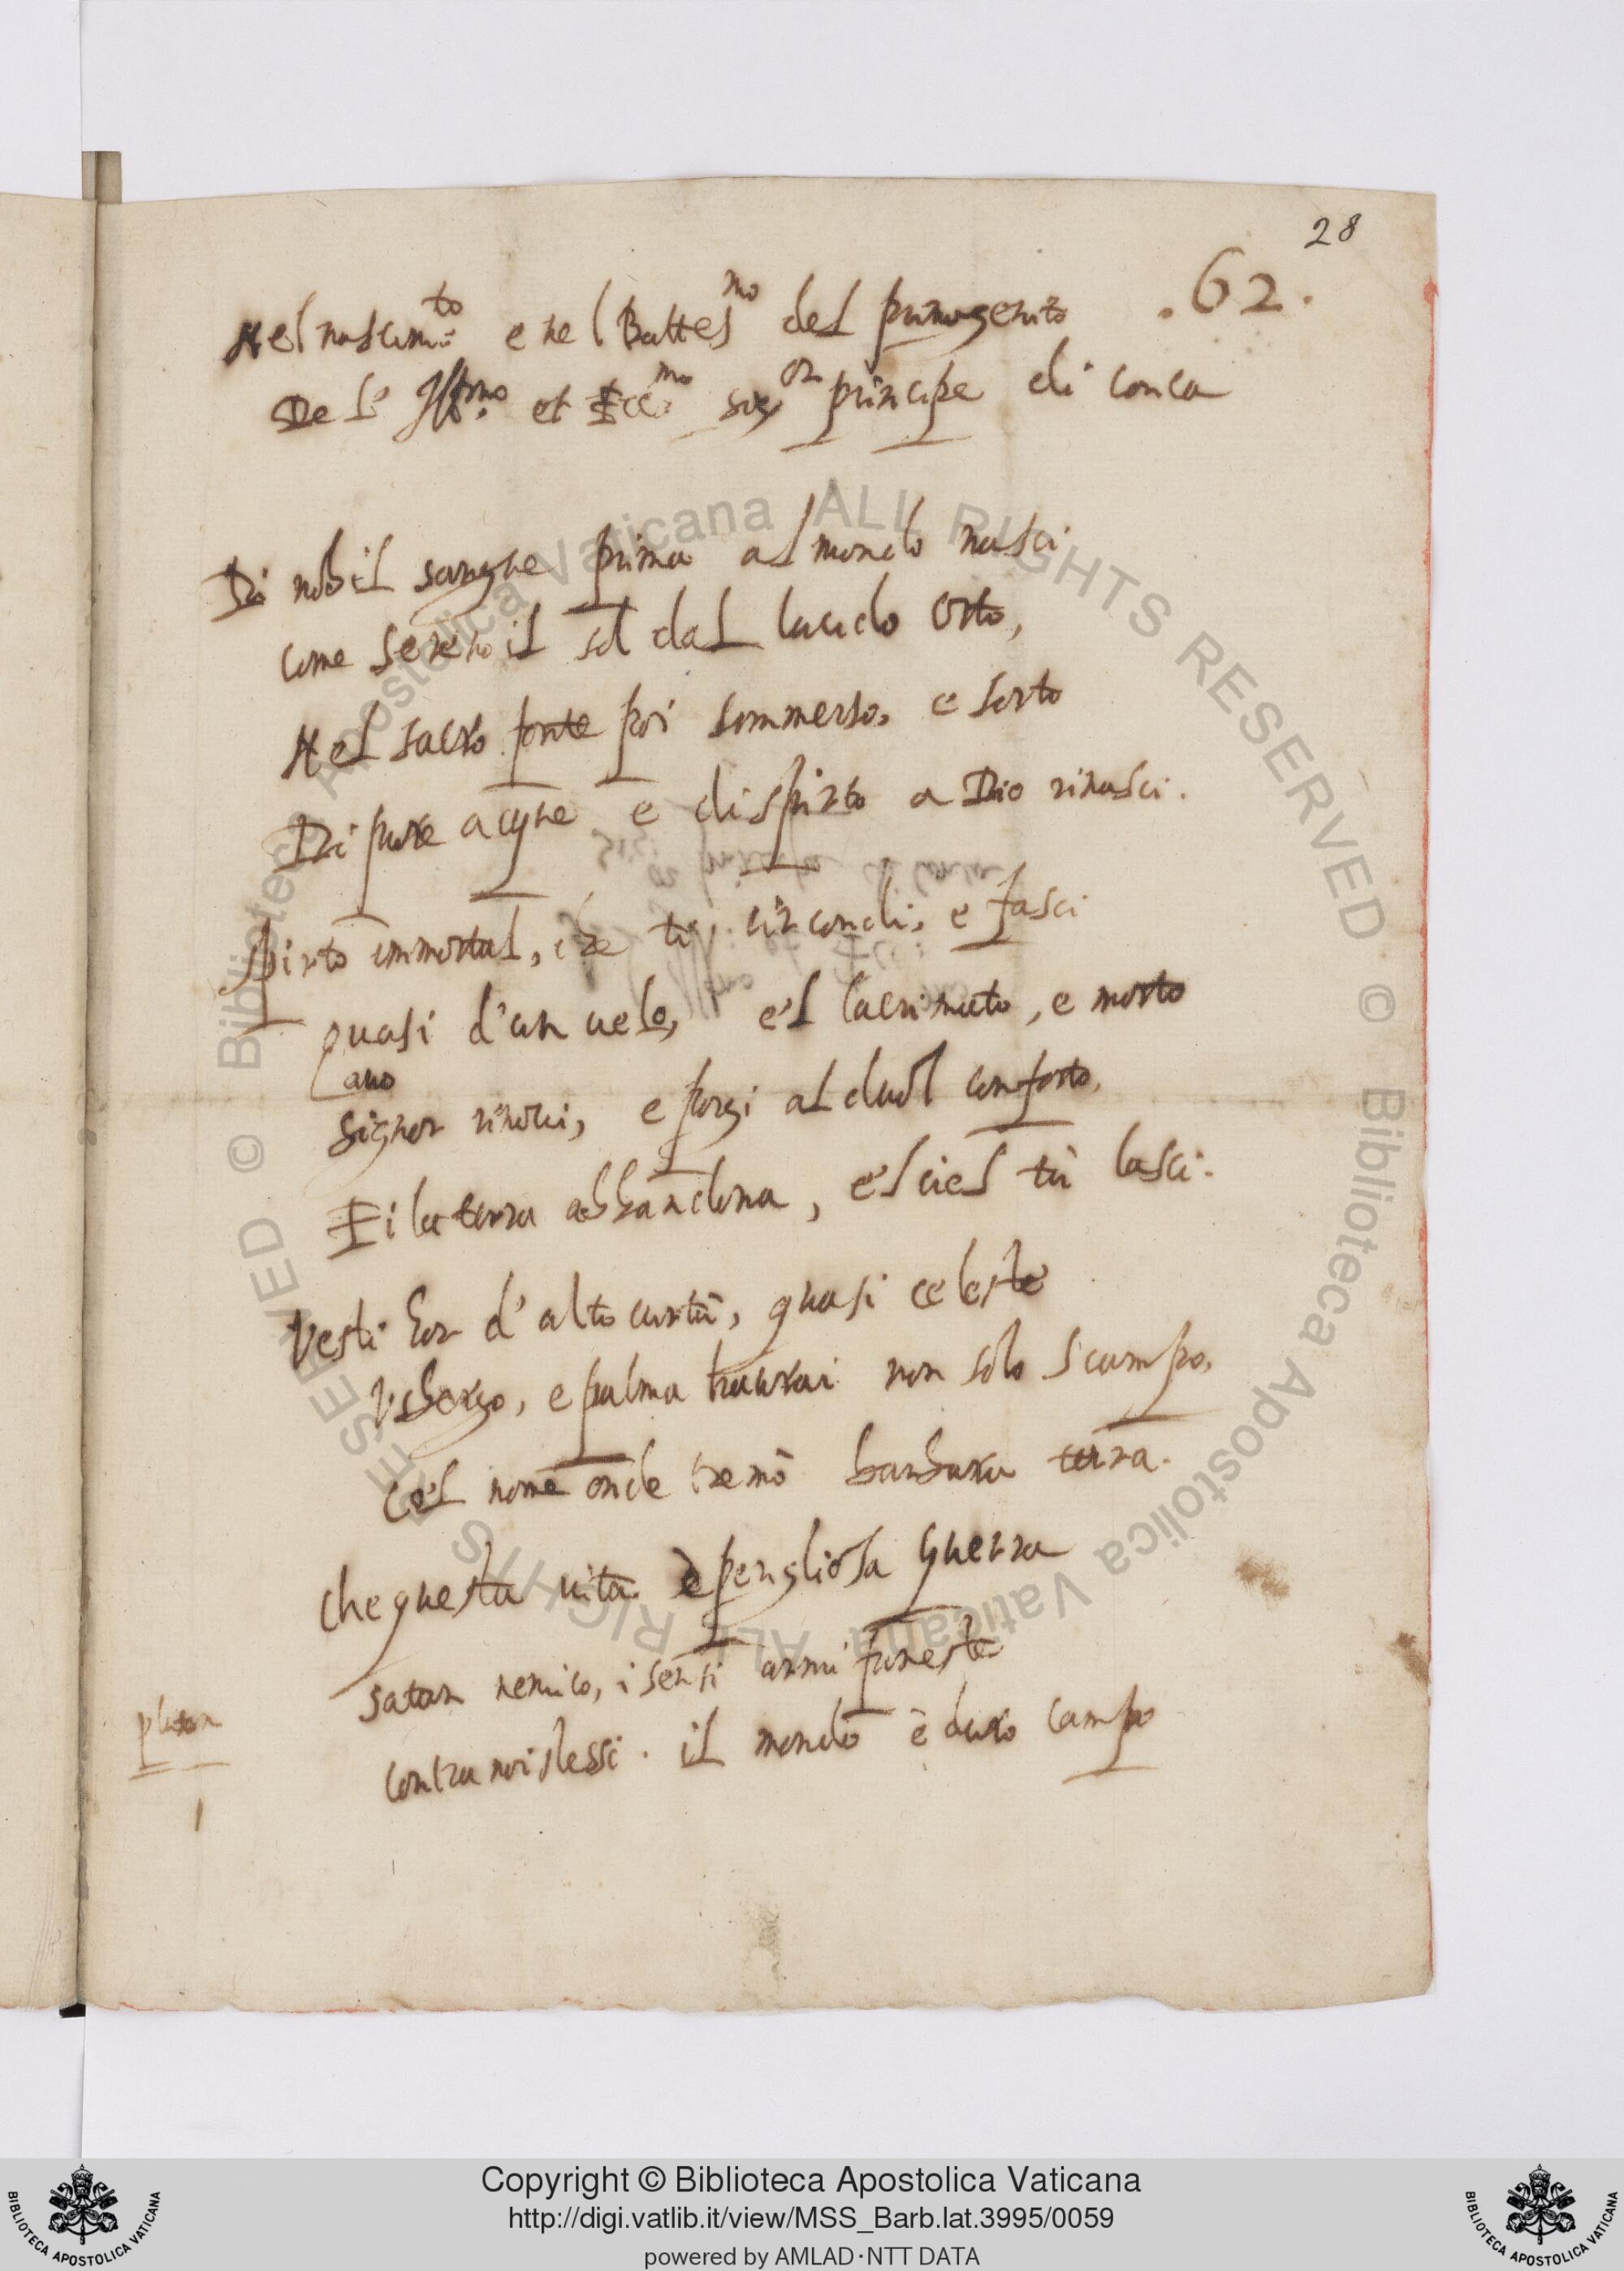 28
.62.
Nel nascim.to e nel Battes.mo del primogenito
De l'Ill.mo et Ecc.mo sig.or principe di conca
Di nobil sangue prima al mondo nasci
come sereno il sol dal lucido Orto,
Nel sacro fonte poi sommerso, e sorto
Di pure acque e di spirto a Dio rinasci.
spirto immortal, che tu circondi, e fasci
quasi d'un velo, e'l lacrimato, e morto
avo
signor rinovi, e porgi al duol conforto,
Ei la terra abbandona, e'l ciel tù lasci.
Vesti hor d'alto virtù, quasi celeste
Vsbergo, e palma haurai non solo scampo,
co'l nome onde tremò barbara terra.
che questa vita è perigliosa guerra
satan nemico, i sensi armi funeste
contra noi stessi. il mondo è duro campo
pluton
Copyright © Biblioteca Apostolica Vaticana
http://digi.vatlib.it/view/MSS_Barb.lat.3995/0059
powered by AMLAD·NTT DATA
BIBLIOTECA APOSTOLICA VATICANA
BIBLIOTECA APOSTOLICA VATICANA
© Biblioteca Apostolica Vaticana ALL RIGHTS RESERVED © Biblioteca Apostolica Vaticana ALL RIGHTS RESERVED